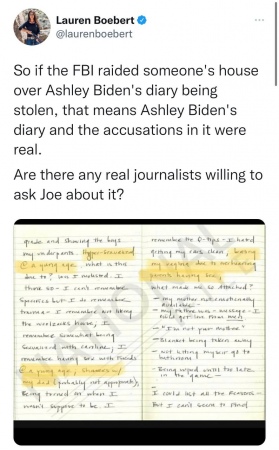 Lauren Boebert
@laurenboebert
So if the FBI raided someone's house
over Ashley Biden's diary being
stolen, that means Ashley Biden's
diary and the accusations in it were
real.
Are there any real journalists willing to
ask Joe about it?
grade and showing the boys
my underpants. Hyper-sexualized
@ a young age. What is this
due to? Was I molested. I
think so - I can't remember
specifics but I do remember
trauma - I remember not liking
the house; I
remember somewhat being
sexualized with; I
remember having sex with friends
@ a young age; showers w/
my dad (probably not appropriate).
Being turned on when I
wasn't supposed to be. I
remember the Q-tips - I hated
getting my ears clean,
my due to
parents hearing sex,
What made me so attached?
- my mother not emotionally
available -
- my father was -
- "I'm not your mother"
- Blanket being taken away
- Not letting myself go to
bathroom
- Being until too late
in the game -
I could list all the reasons
But I can't seem to find